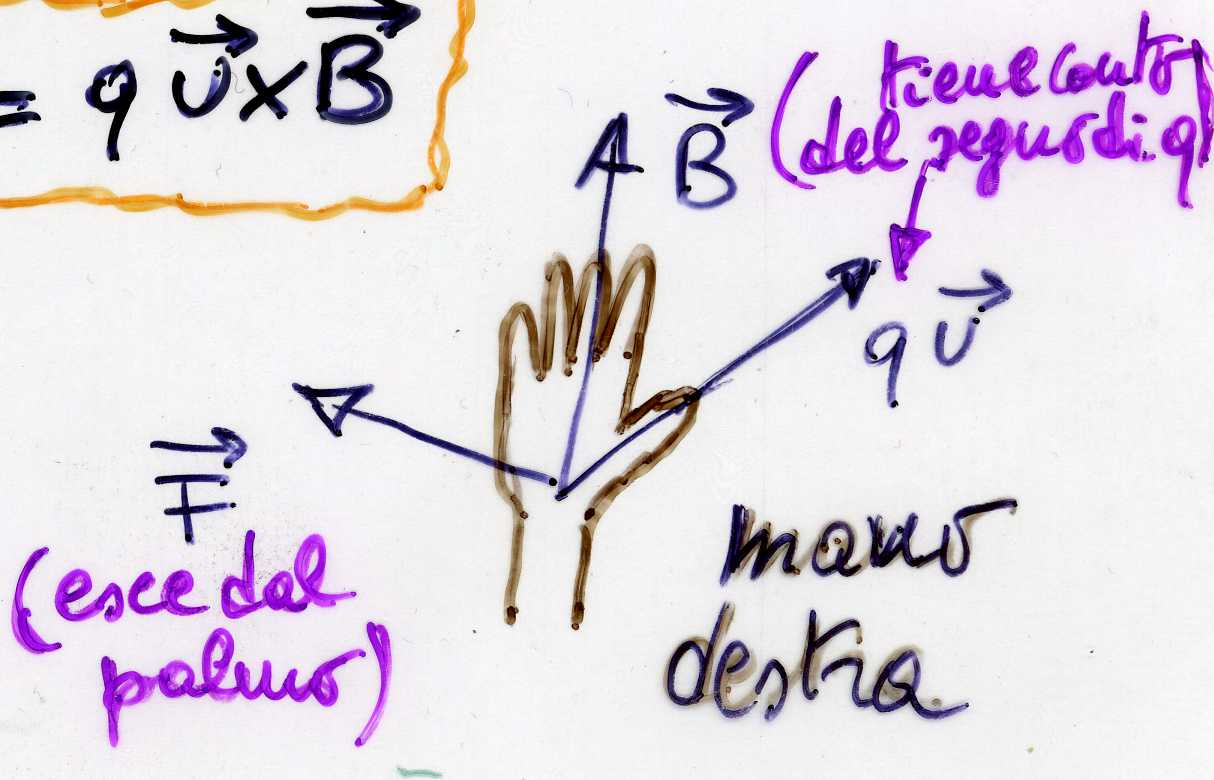 = q v⃗ × B⃗
(tiene conto
del segno di q)
B⃗
q v⃗
F⃗
(esce dal
palmo)
mano
destra